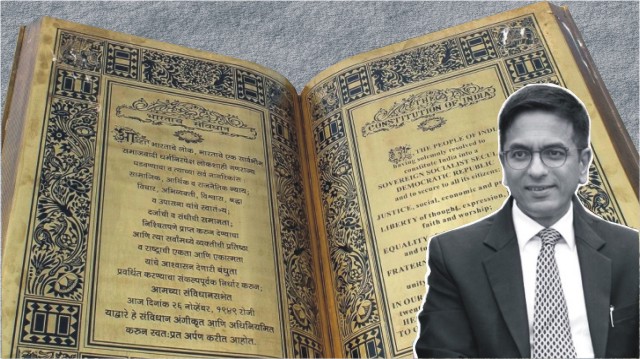 भारताचे संविधान
भारताचे लोक, भारताचे एक सार्वभौम
समाजवादी धर्मनिरपेक्ष लोकशाही गणराज्य
घडवण्याचा व त्याच्या सर्व नागरिकांस
सामाजिक, आर्थिक व राजनैतिक न्याय;
विचार, अभिव्यक्ती, विश्वास, श्रद्धा
व उपासना यांचे स्वातंत्र्य;
दर्जाची व संधीची समानता;
निश्चितपणे प्राप्त करुन देण्याचा
आणि त्या सर्वांमध्ये व्यक्तीची प्रतिष्ठा
व राष्ट्राची एकता आणि एकात्मता
यांचे आश्वासन देणारी बंधुता
प्रवर्धित करण्याचा संकल्पपूर्वक निर्धार करुन,
आमच्या संविधानसभेत
आज दिनांक २६ नोव्हेंबर, १९४९ रोजी
याद्वारे हे संविधान अंगीकृत आणि अधिनियमित
करुन स्वतःप्रत अर्पण करीत आहोत.
THE
CONSTITUTION OF INDIA
THE PEOPLE OF
having solemnly resolved to
constitute India into a
SOVEREIGN SOCIALIST
DEMOCRATIC REPUBLIC
and to secure to all its citizens
JUSTICE, social, economic and
LIBERTY of thought, expression,
faith and worship;
EQUALITY
and to
unity
IN OUR